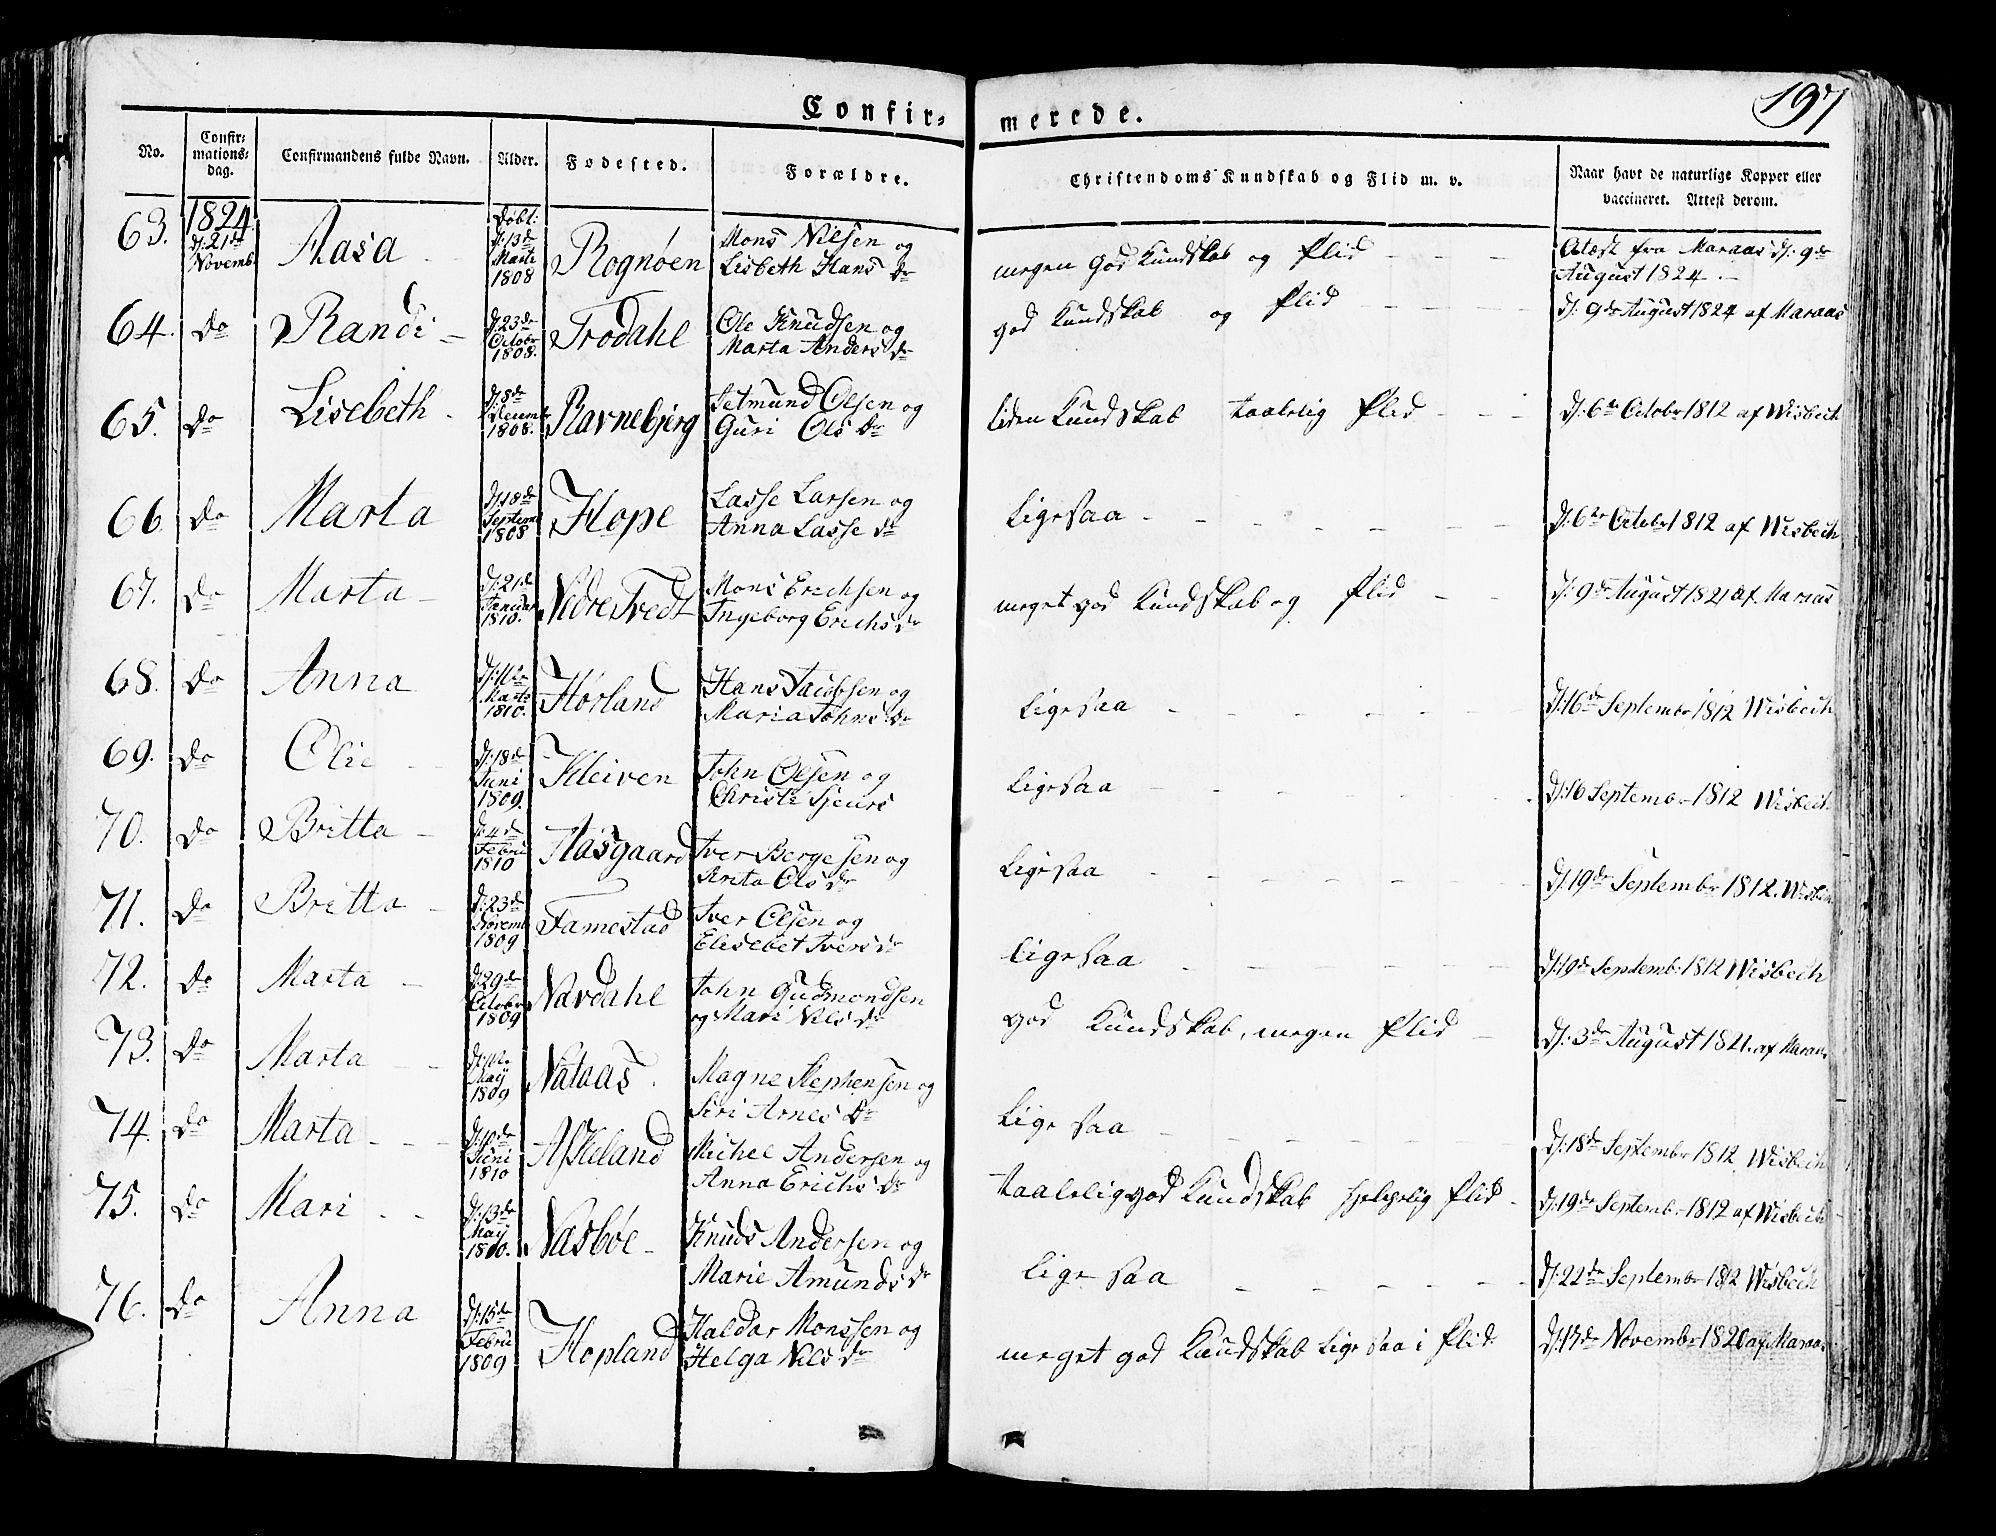 Confir-
merede.
197
No.
Confir-
mations-
dag.
Confirmandens fulde Navn.
Alder.
Fødested.
Forældre.
Christendoms Kundskab og Flid m. v.
Naar havt de naturlige Kopper eller
vaccineret. Attest derom.
63. 1824 d: 21de Novemb. Aasa døbt: d: 13de Marts 1808 Rognøen Mons Nilsen og Lisbeth Hans Dr megen god Kundskab og Flid Attest fra Maraas d: 9de August 1824
64. Do Randi d: 23de Octobr 1808. Trodahl Ole Knudsen og Marta Anders Dr god Kundskab og Flid d: 9de August 1824 af Maraas
65. Do Lisebeth d: 8de 1808. Ravnebjerg Setmund Olsen og Guri Ols Dr liden Kundskab taalelig Flid d: 6te Octobr 1812 af Wisbech
66. Do Marta d: 18de Septemb 1808 Hope Lasse Larsen og Anna Lasse Dr Ligesaa d: 6te Octobr 1812 af Wisbech
67. Do Marta d: 21de Januar 1810. Nedre Tvedt Mons Erichsen og Ingeborg Erichs Dr meget god Kundskab og Flid d: 9de August 1821 af Maraas
68. Do Anna Marts 1810. Hørland Hans Jacobsen og Maria Johns Dr Ligesaa d: 16de Septembr 1812 Wisbech
69. Do Olie d: 18de Juni 1809. Kleiven John Olsen og Christi Sjeurs Ligesaa d: 16 Septembr 1812 Wisbech
70. Do Britta d: 4de Febru 1810 Haasgaard Iver Bergesen og Brita Ols Dr Ligesaa d: 19de Septembr 1812. Wisbech
71. Do Britta d: 23de Novemb 1809 Famestad Iver Olsen og Elisebet Ivers Dr Ligesaa d: 19de Septembr 1812 Wisbech
72. Do Marta d: 29de Octobr 1809 Navdahl John Gudmondsen og Mari Nils Dr god Kundskab, megen Flid d: 3de August 1821. af Maraas
73. Do Marta Maij 1809 Nataas. Magne Stephensen og Siri Arnes Dr Ligesaa d: 18de Septembr 1812 Wisbech
74. Do Marta d: 10de Juni 1810 Askeland Michel Andersen og Anna Erichs Dr taalelig god Kundskab Flid d: 19de Septembr 1812 af Wisbech
75. Do Mari d: 13de Maij 1810. Nasbøe Knuds Andersen og Marie Amunds Dr Ligesaa d: 22de Septembr 1812 Wisbech
76. Do Anna d: 15de Febru 1809 Hopland Haldor Monssen og Helga Nils Dr meget god Kundskab ligesaa i Flid d: 13de Novembr 1820 af Maraas